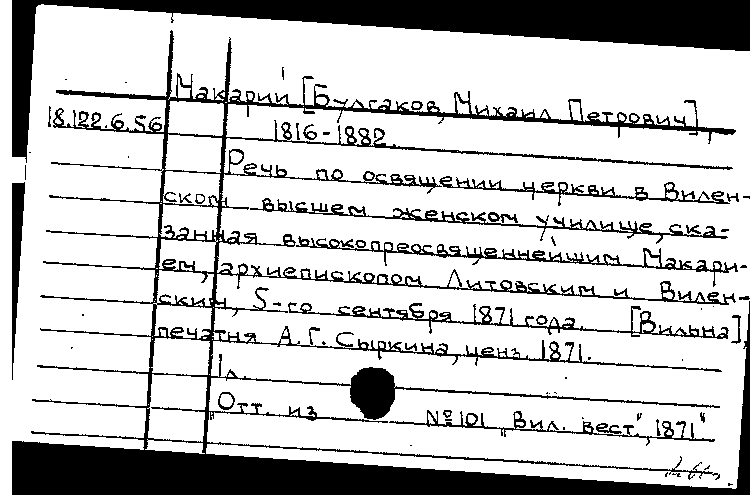 Макарий [Булгаков, Михаил Петрович],
18.122.6.56
1816-1882.
Речь по освящении церкви в Вилен-
ском высшем женском училище, ска-
занная высокопреосвященнейшим Макари-
ем, архиепископом Литовским и Вилен-
ским, 5-го сентября 1871 года. [Вильна],
печатня А.Г. Сыркина, ценз. 1871.
1л.
Отт. из №101 „Вил. вест.", 1871"